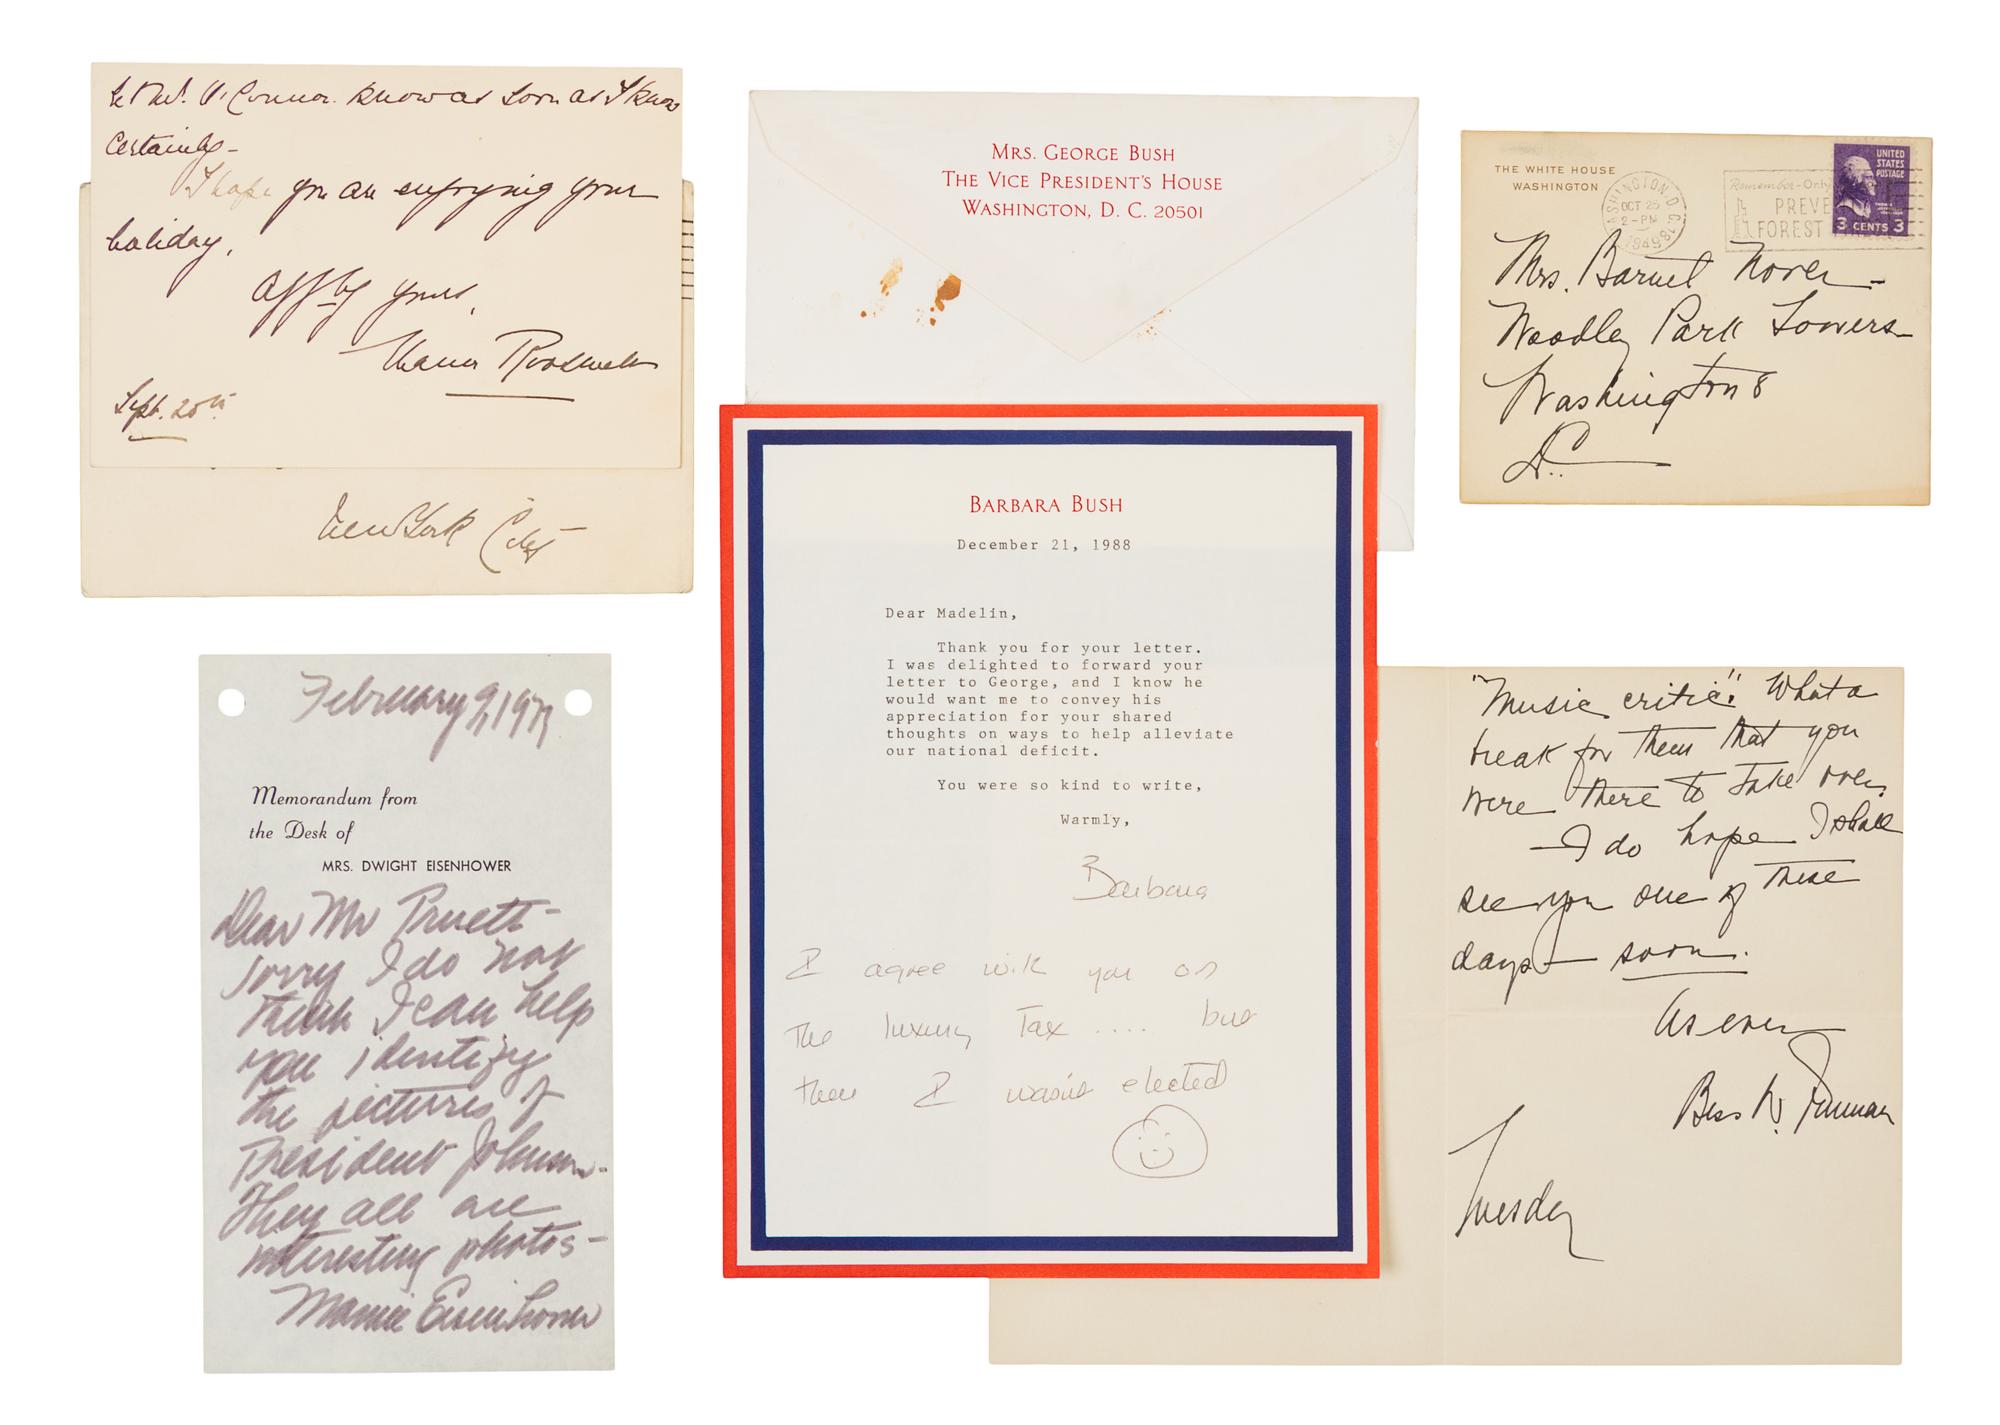 let Mrs. O'Connor know as soon as I know
certainly -
I hope you are enjoying your
holiday.
Affly yours,
Eleanor Roosevelt
Sept. 20th
New York City
MRS. GEORGE BUSH
THE VICE PRESIDENT'S HOUSE
WASHINGTON, D. C. 20501
THE WHITE HOUSE
WASHINGTON
WASHINGTON D.C.
OCT 25
2-PM
1949
Remember-Only
PREVE
FOREST
UNITED
STATES
POSTAGE
3 CENTS 3
Mrs. Barnet Nover -
Woodley Park Towers
Washington 8
D.C.
February 9, 197
Memorandum from
the Desk of
MRS. DWIGHT EISENHOWER
Dear Mr Pruett -
Sorry I do not
think I can help
you identify
the pictures of
President Johnson -
They all are
interesting photos -
Mamie Eisenhower
BARBARA BUSH
December 21, 1988
Dear Madelin,
Thank you for your letter.
I was delighted to forward your
letter to George, and I know he
would want me to convey his
appreciation for your shared
thoughts on ways to help alleviate
our national deficit.
You were so kind to write,
Warmly,
Barbara
I agree with you on
the luxury tax .... but
then I wasn't elected
"Music critic". What a
break for them that you
were there to take over.
— I do hope I shall
see you one of these
days — soon.
As ever
Bess W. Truman
Tuesday